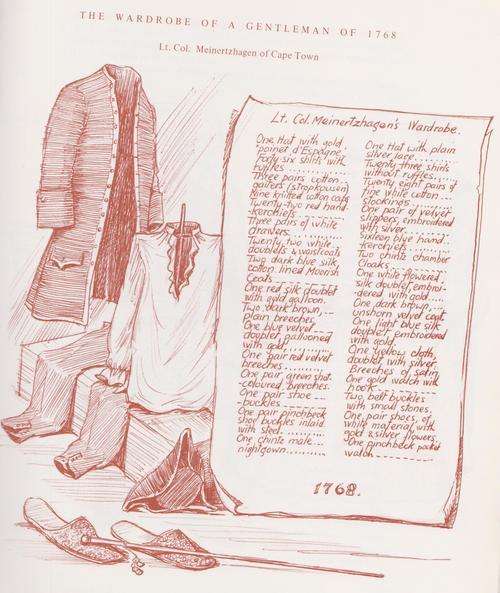 THE WARDROBE OF A GENTLEMAN OF 1768
Lt. Col. Meinertzhagen of Cape Town
Lt. Col. Meinertzhagen's Wardrobe.
One Hat with gold
"poinet d'Espagne"
Forty six shirts with
ruffles
Three pairs cotton
gaiters (stropkousen)
Nine knitted cotton caps
Twenty-two red hand-
-kerchiefs
Three pairs of white
drawers
Twenty two white
doublets & waistcoats
Two dark blue silk
cotton lined Moorish
Coats
One red silk doublet
with gold galloon.
Two dark brown,
Plain breeches
One blue velvet
doublet, gallooned
with gold
One pair red velvet
breeches
One pair green shot-
-coloured breeches.
One pair shoe
-buckles
One pair pinchbeck
shoe buckles inlaid
with steel
One chintz male
nightgown
One Hat with plain
silver lace
Twenty three shirts
without ruffles
Twenty eight pairs of
fine white cotton
stockings
One pair of velvet
slippers embroidered
with silver
Sixteen blue hand-
-kerchiefs
Two chintz chamber
Cloaks
One white flowered,
silk doublet, embroi-
-dered with gold
One dark brown,
unshorn velvet coat
One light blue silk
doublet embroidered
with gold
One yellow cloth
doublet, with silver
Breeches of satin
One gold watch with
hook
Two belt buckles
with small stones.
One pair shoes of
white material with
gold & silver flowers
One pinchbeck pocket
watch
1768.